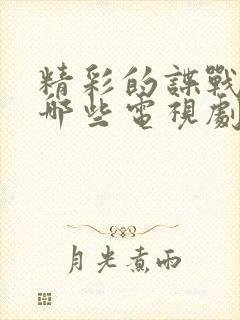 精彩的諜戰
哪些電視劇
月光煮雨